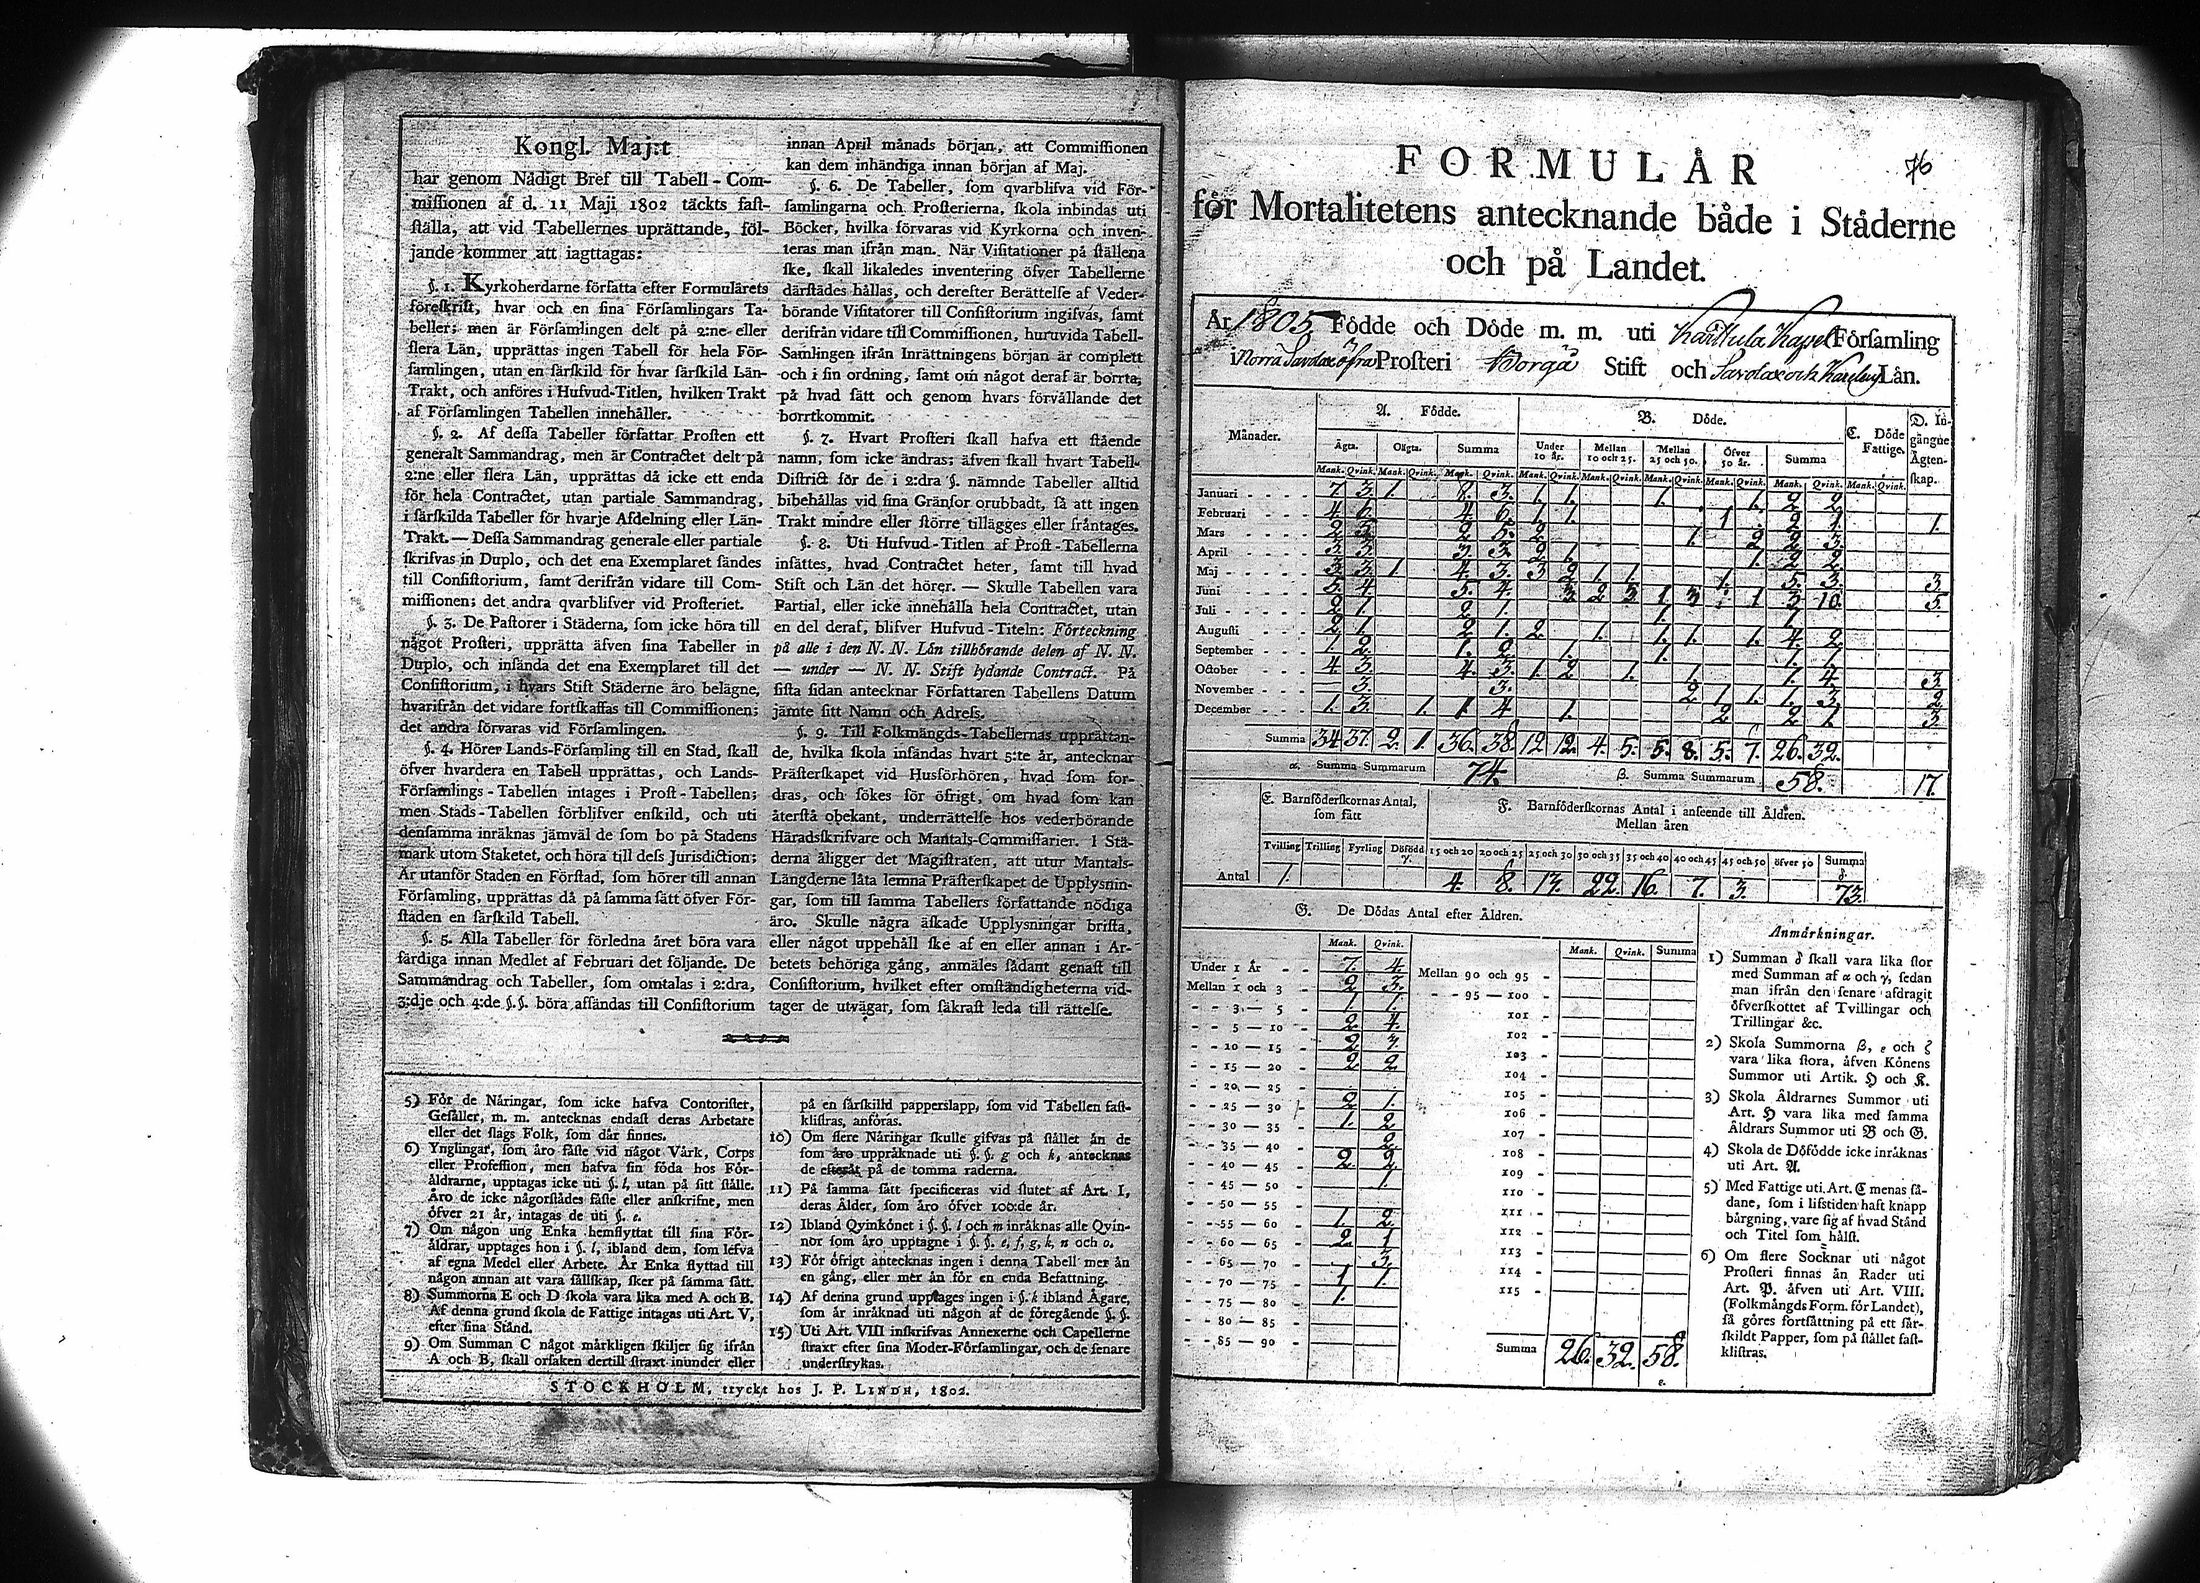 Kongl. Maj:t
har genom Nådigt Bref till Tabell-Com-
missionen af d. 11 Maji 1802 täckts fast-
ställa, att vid Tabellernes uprättande, föl-
jande kommer att iagttagas:
§. 1. Kyrkoherdarne författa efter Formulärets
föreskrift, hvar och en sina Församlingars Ta-
beller; men är Församlingen delt på 2:ne eller
flera Län, upprättas ingen Tabell för hela För-
samlingen, utan en särskild för hvar särskild Län-
Trakt, och anföres i Hufvud-Titlen, hvilken Trakt
af Församlingen Tabellen innehåller.
§. 2. Af dessa Tabeller författar Prosten ett
generalt Sammandrag, men är Contractet delt på
2:ne eller flera Län, upprättas då icke ett enda
för hela Contractet, utan partiale Sammandrag,
i särskilda Tabeller för hvarje Afdelning eller Län-
Trakt. — Dessa Sammandrag generale eller partiale
skrifvas in Duplo, och det ena Exemplaret sändes
till Consistorium, samt derifrån vidare till Com-
missionen; det andra qvarblifver vid Prosteriet.
§. 3. De Pastorer i Städerna, som icke höra till
något Prosteri, upprätta äfven sina Tabeller in
Duplo, och insända det ena Exemplaret till det
Consistorium, i hvars Stift Städerne äro belägne,
hvarifrån det vidare fortskaffas till Commissionen;
det andra förvaras vid Församlingen.
§. 4. Hörer Lands-Församling till en Stad, skall
öfver hvardera en Tabell upprättas, och Lands-
Församlings-Tabellen intages i Prost-Tabellen;
men Stads-Tabellen förblifver enskild, och uti
densamma inräknas jämväl de som bo på Stadens
mark utom Staketet, och höra till dess Jurisdiction;
Är utanför Staden en Förstad, som hörer till annan
Församling, upprättas då på samma sätt öfver För-
staden en särskild Tabell.
§. 5. Alla Tabeller för förledna året böra vara
färdiga innan Medlet af Februari det följande. De
Sammandrag och Tabeller, som omtalas i 2:dra,
3:dje och 4:de §.§. böra affändas till Consistorium
innan April månads början, att Commissionen
kan dem inhändiga innan början af Maj.
§. 6. De Tabeller, som qvarblifva vid För-
samlingarna och Prosterierna, skola inbindas uti
Böcker, hvilka förvaras vid Kyrkorna och inven-
teras man ifrån man. När Visitationer på ställena
ske, skall likaledes inventering öfver Tabellerne
därstädes hållas, och derefter Berättelse af Veder-
börande Visitatorer till Consistorium ingifvas, samt
derifrån vidare till Commissionen, huruvida Tabell-
Samlingen ifrån Inrättningens början är complett
och i sin ordning, samt om något deraf är borrta,
på hvad sätt och genom hvars förvållande det
borrtkommit.
§. 7. Hvart Prosteri skall hafva ett stående
namn, som icke ändras; äfven skall hvart Tabell-
District för de i 2:dra §. nämnde Tabeller alltid
bibehållas vid sina Gränsor orubbadt, så att ingen
Trakt mindre eller större tillägges eller fråntages.
§. 8. Uti Hufvud-Titlen af Prost-Tabellerna
insättes, hvad Contractet heter, samt till hvad
Stift och Län det hörer. — Skulle Tabellen vara
Partial, eller icke innehålla hela Contractet, utan
en del deraf, blifver Hufvud-Titeln: Förteckning
på alle i den N. N. Län tillhörande delen af N. N.
— under — N. N. Stift lydande Contract. På
sista sidan antecknar Författaren Tabellens Datum
jämte sitt Namn och Adress.
§. 9. Till Folkmängds-Tabellernas upprättan-
de, hvilka skola insändas hvart 5:te år, antecknar
Prästerskapet vid Husförhören, hvad som for-
dras, och sökes för öfrigt, om hvad som kan
återstå obekant, underrättelse hos vederbörande
Häradsskrifvare och Mantals-Commissarier. I Stä-
derna åligger det Magistraten, att utur Mantals-
Längderne låta lemna Prästerskapet de Upplysnin-
gar, som till samma Tabellers författande nödiga
äro. Skulle några äskade Upplysningar brista,
eller något uppehåll ske af en eller annan i Ar-
betets behöriga gång, anmäles sådant genast till
Consistorium, hvilket efter omständigheterna vid-
tager de utvägar, som säkrast leda till rättelse.
5) För de Näringar, som icke hafva Contorister,
Gesäller, m. m. antecknas endast deras Arbetare
eller det slags Folk, som där finnes.
6) Ynglingar, som äro fäste vid något Värk, Corps
eller Profession, men hafva sin föda hos För-
äldrarne, upptagas icke uti §. l, utan på sitt ställe.
Äro de icke någorstädes fäste eller anskrifne, men
öfver 21 år, intagas de uti §. e.
7) Om någon ung Enka hemflyttat till sina För-
äldrar, upptages hon i §. l, ibland dem, som lefva
af egna Medel eller Arbete. Är Enka flyttad till
någon annan att vara sällskap, sker på samma sätt.
8) Summorna E och D skola vara lika med A och B.
Af denna grund skola de Fattige intagas uti Art. V,
efter sina Stånd.
9) Om Summan C något märkligen skiljer sig ifrån
A och B, skall orsaken dertill straxt inunder eller
på en särskilld papperslapp, som vid Tabellen fast-
klistras, anföras.
10) Om flere Näringar skulle gifvas på stället än de
som äro uppräknade uti §. §. g och k, antecknas
de efteråt på de tomma raderna.
11) På samma sätt specificeras vid slutet af Art. I,
deras Ålder, som äro öfver 100:de år.
12) Ibland Qvinkönet i §. §. l och m inräknas alle Qvin-
nor som äro upptagne i §. §. e, f, g, k, n och o.
13) För öfrigt antecknas ingen i denna Tabell mer än
en gång, eller mer än för en enda Befattning.
14) Af denna grund upptages ingen i §. k ibland Ägare,
som är inräknad uti någon af de föregående §. §.
15) Uti Art. VIII inskrifvas Annexerne och Capellerne
straxt efter sina Moder-Församlingar, och de senare
understrykas.
STOCKHOLM, tryckt hos J. P. LINDH, 1802.
76
FORMULÄR
för Mortalitetens antecknande både i Städerne
och på Landet.
År 1805 Födde och Döde m. m. uti Karttula Kapell Församling
i Norra Savolax öfra Prosteri Borgå Stift och Savolax och Karelens Län.
Månader. A. Födde. B. Döde. C. Döde Fattige. D. In-gångne Ägten-skap.
Ägta. Oägta. Summa Under 10 år. Mellan 10 och 25. Mellan 25 och 50. Öfver 50 år. Summa
Mank. Qvink. Mank. Qvink. Mank. Qvink. Mank. Qvink. Mank. Qvink. Mank. Qvink. Mank. Qvink. Mank. Qvink. Mank. Qvink.
Januari 7 3. 1. 8. 3. 1 1. 1. 1. 2 2
Februari 4 6. 4 6. 1 1. 1 2 1. 1.
Mars 2 5. 2 5. 2 1. 2 2 3.
April 3 3. 3 3. 2 1. 1. 2 2
Maj 3 3. 1 4. 3. 3 2 1. 1. 1. 5. 3. 3
Juni 5. 4. 5. 4. 3 2 3. 1 3 1 1 3 10. 5.
Juli 2 1. 2 1. 1. 1.
Augusti 2 1. 2 1. 2 1. 1. 1. 1. 4. 2
September 1. 2 1. 2 1. 1. 1. 1.
October 4 3. 4. 3. 1. 2 1. 1. 1. 4. 3
November 3. 3. 2 1 1. 1. 3. 2
December 1. 3 1. 1. 4 1. 2 2 1. 3.
Summa 34. 37. 2. 1. 36. 38. 12 12. 4. 5. 5. 8. 5. 7. 26. 32.
α. Summa Summarum 74. β. Summa Summarum 58. 17.
E. Barnföderskornas Antal, som fått
F. Barnföderskornas Antal i anseende till Åldren.
Mellan åren
Tvilling Trilling Fyrling Dödfödd γ. 15 och 20 20 och 25 25 och 30 30 och 35 35 och 40 40 och 45 45 och 50 öfver 50 Summa δ.
Antal 1. 4. 8. 13. 22. 16. 7. 3. 73.
G. De Dödas Antal efter Åldren.
Mank. Qvink.
Under 1 År 7. 4.
Mellan 1 och 3 2 3.
3 — 5 1 1.
5 — 10 2 4.
10 — 15 2 3.
15 — 20 2 2
20 — 25
25 — 30 2 1.
30 — 35 1. 2
35 — 40 2
40 — 45 2 2
45 — 50 1.
50 — 55
55 — 60 1. 2
60 — 65 2 1
65 — 70 3.
70 — 75 1 1.
75 — 80 1.
80 — 85
85 — 90
Mank. Qvink. Summa
Mellan 90 och 95
95 — 100
101
102
103
104
105
106
107
108
109
110
111
112
113
114
115
Summa 26. 32. 58.
ε.
Anmärkningar.
1) Summan δ skall vara lika stor
med Summan af α och γ, sedan
man ifrån den senare afdragit
öfverskottet af Tvillingar och
Trillingar &c.
2) Skola Summorna β, ε och ζ
vara lika stora, äfven Könens
Summor uti Artik. H och K.
3) Skola Åldrarnes Summor uti
Art. H vara lika med samma
Åldrars Summor uti B och G.
4) Skola de Döfödde icke inräknas
uti Art. A.
5) Med Fattige uti Art. C menas så-
dane, som i lifstiden haft knapp
bärgning, vare sig af hvad Stånd
och Titel som hälst.
6) Om flere Socknar uti något
Prosteri finnas än Rader uti
Art. P. äfven uti Art. VIII.
(Folkmängds Form. för Landet),
så göres fortsättning på ett sär-
skildt Papper, som på stället fast-
klistras.